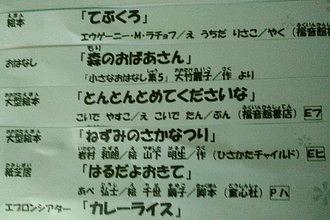 絵本 「てぶくろ」
エウゲーニー・M・ラチョフ/え うちだ りさこ/やく (福音館
おはなし 「森のおばあさん」
「小さなおはなし集5」 大竹麗子/作 より
大型絵本 「とんとんとめてくださいな」
こいで やすこ/え こいで たん/ぶん (福音館書店) Eフ
大型絵本 「ねずみのさかなつり」
岩村 和朗/絵 山下 明生/作 (ひさかたチャイルド) Eヒ
紙芝居 「はるだよおきて」
あべ 弘士/絵 千世 繭子/脚本 (童心社) Pハ
エプロンシアター 「カレーライス」